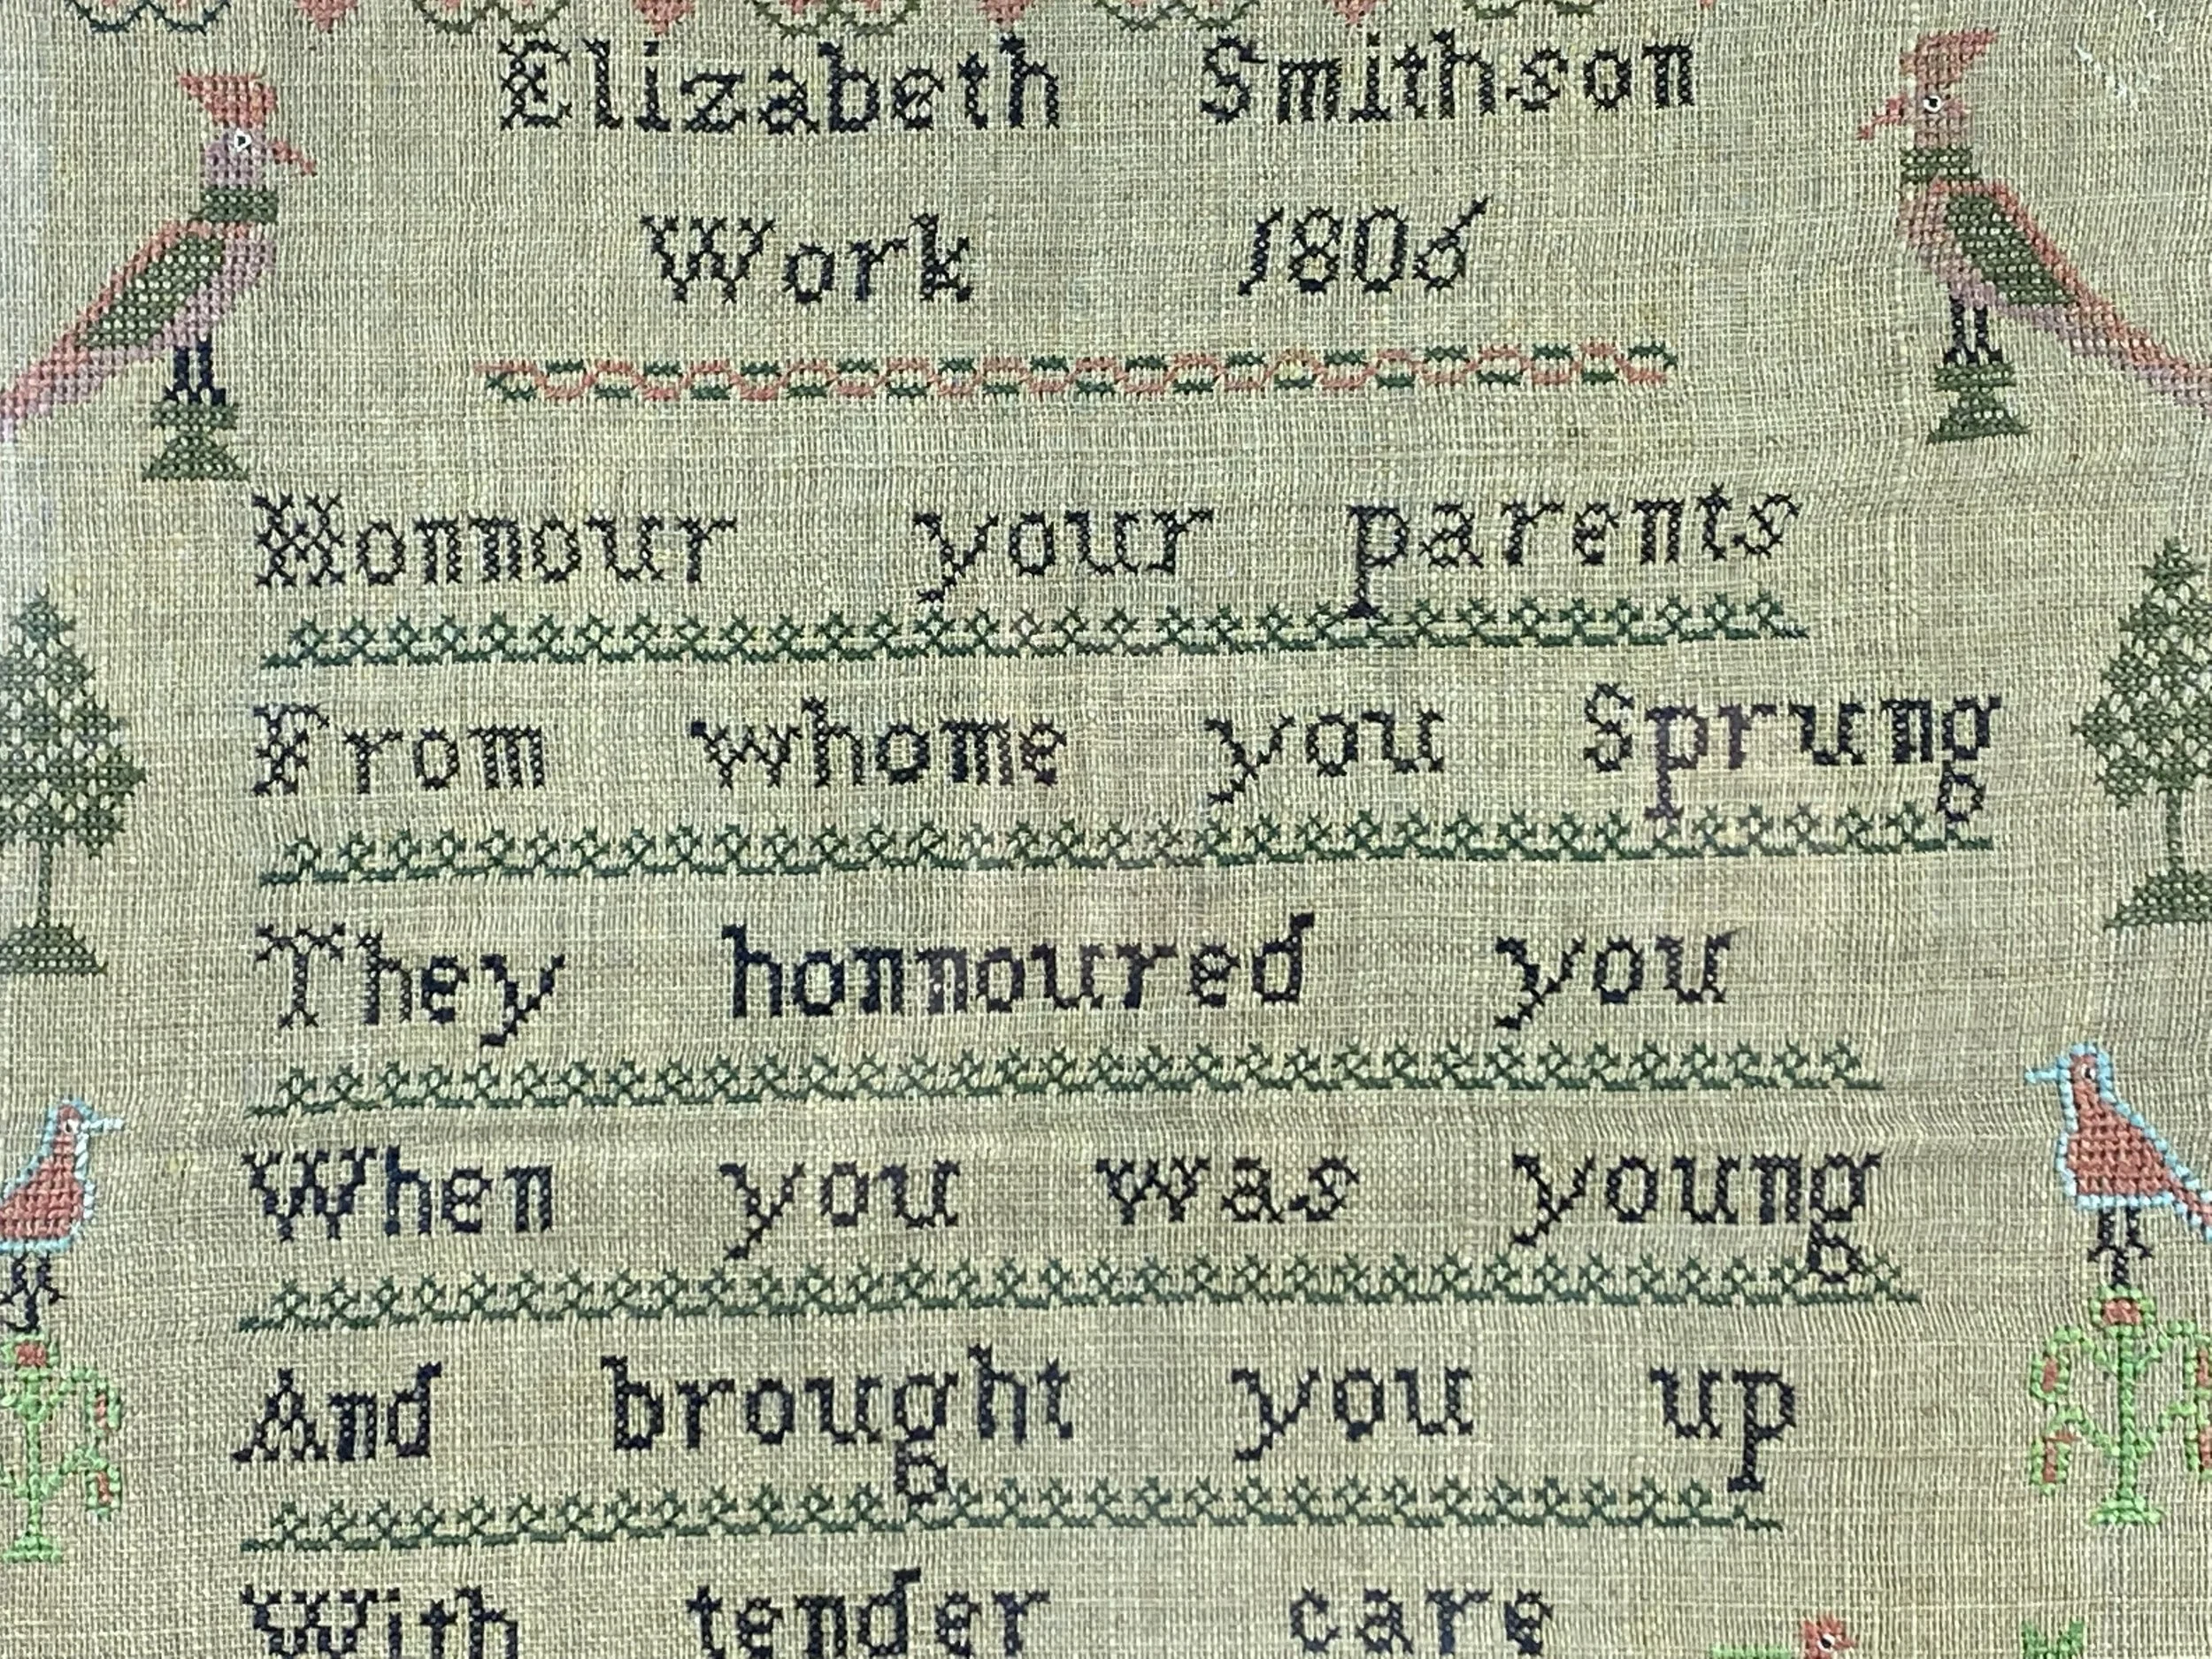 Elizabeth Smithson
Work 1806
Honnour your parents
From whome you Sprung
They honnoured you
When you was young
And brought you up
With tender care